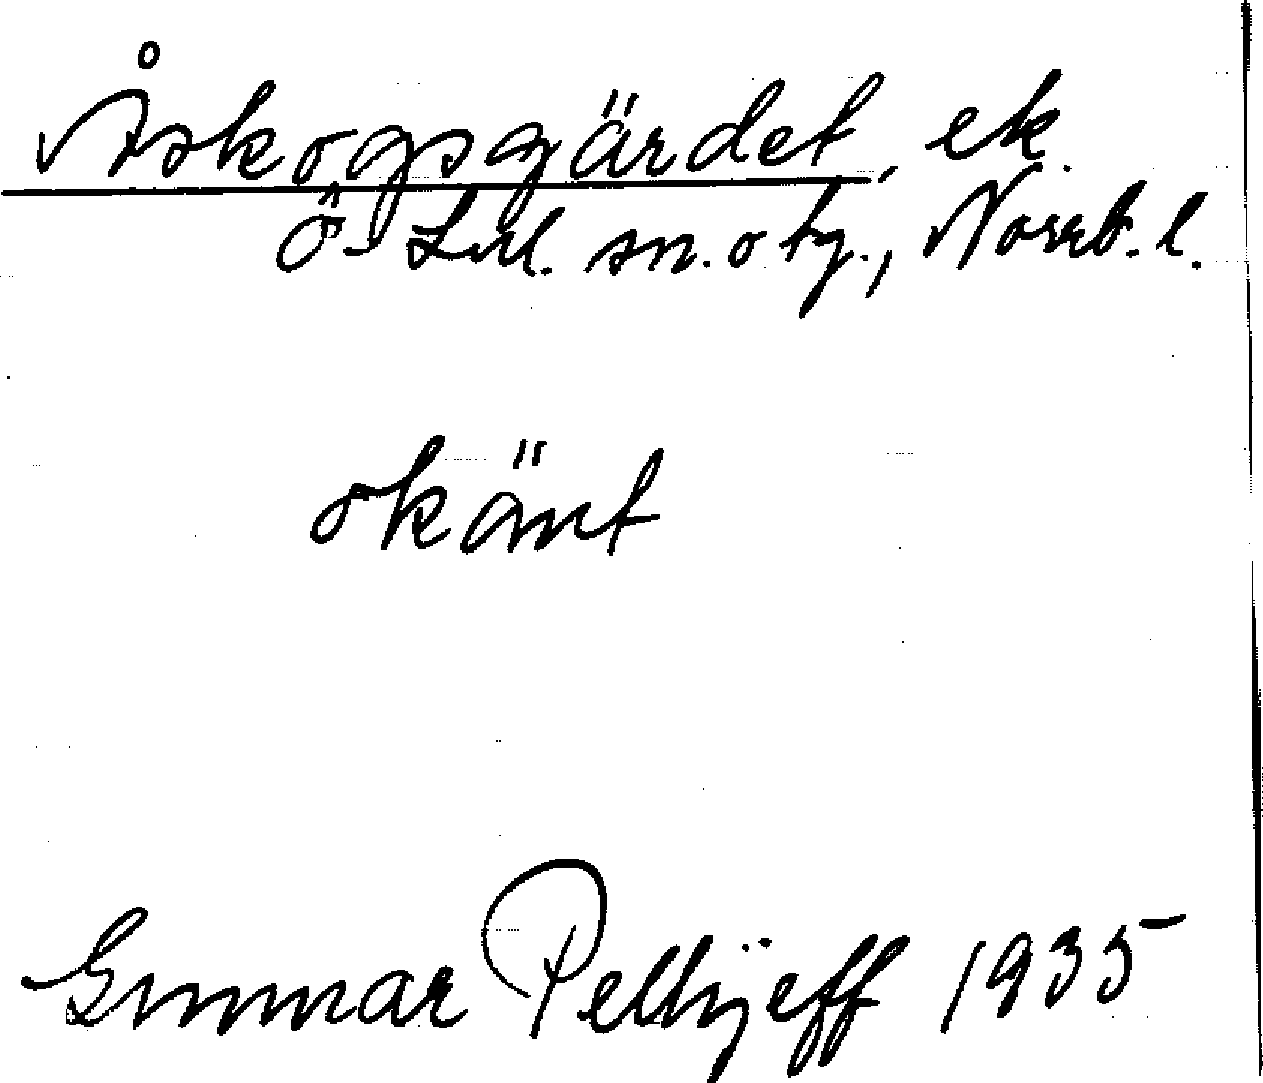 Åskogsgärdet, ek.
Ö-Lul. sn. o tg., Norrb. l.
okänt
Gunnar Pellijeff 1935